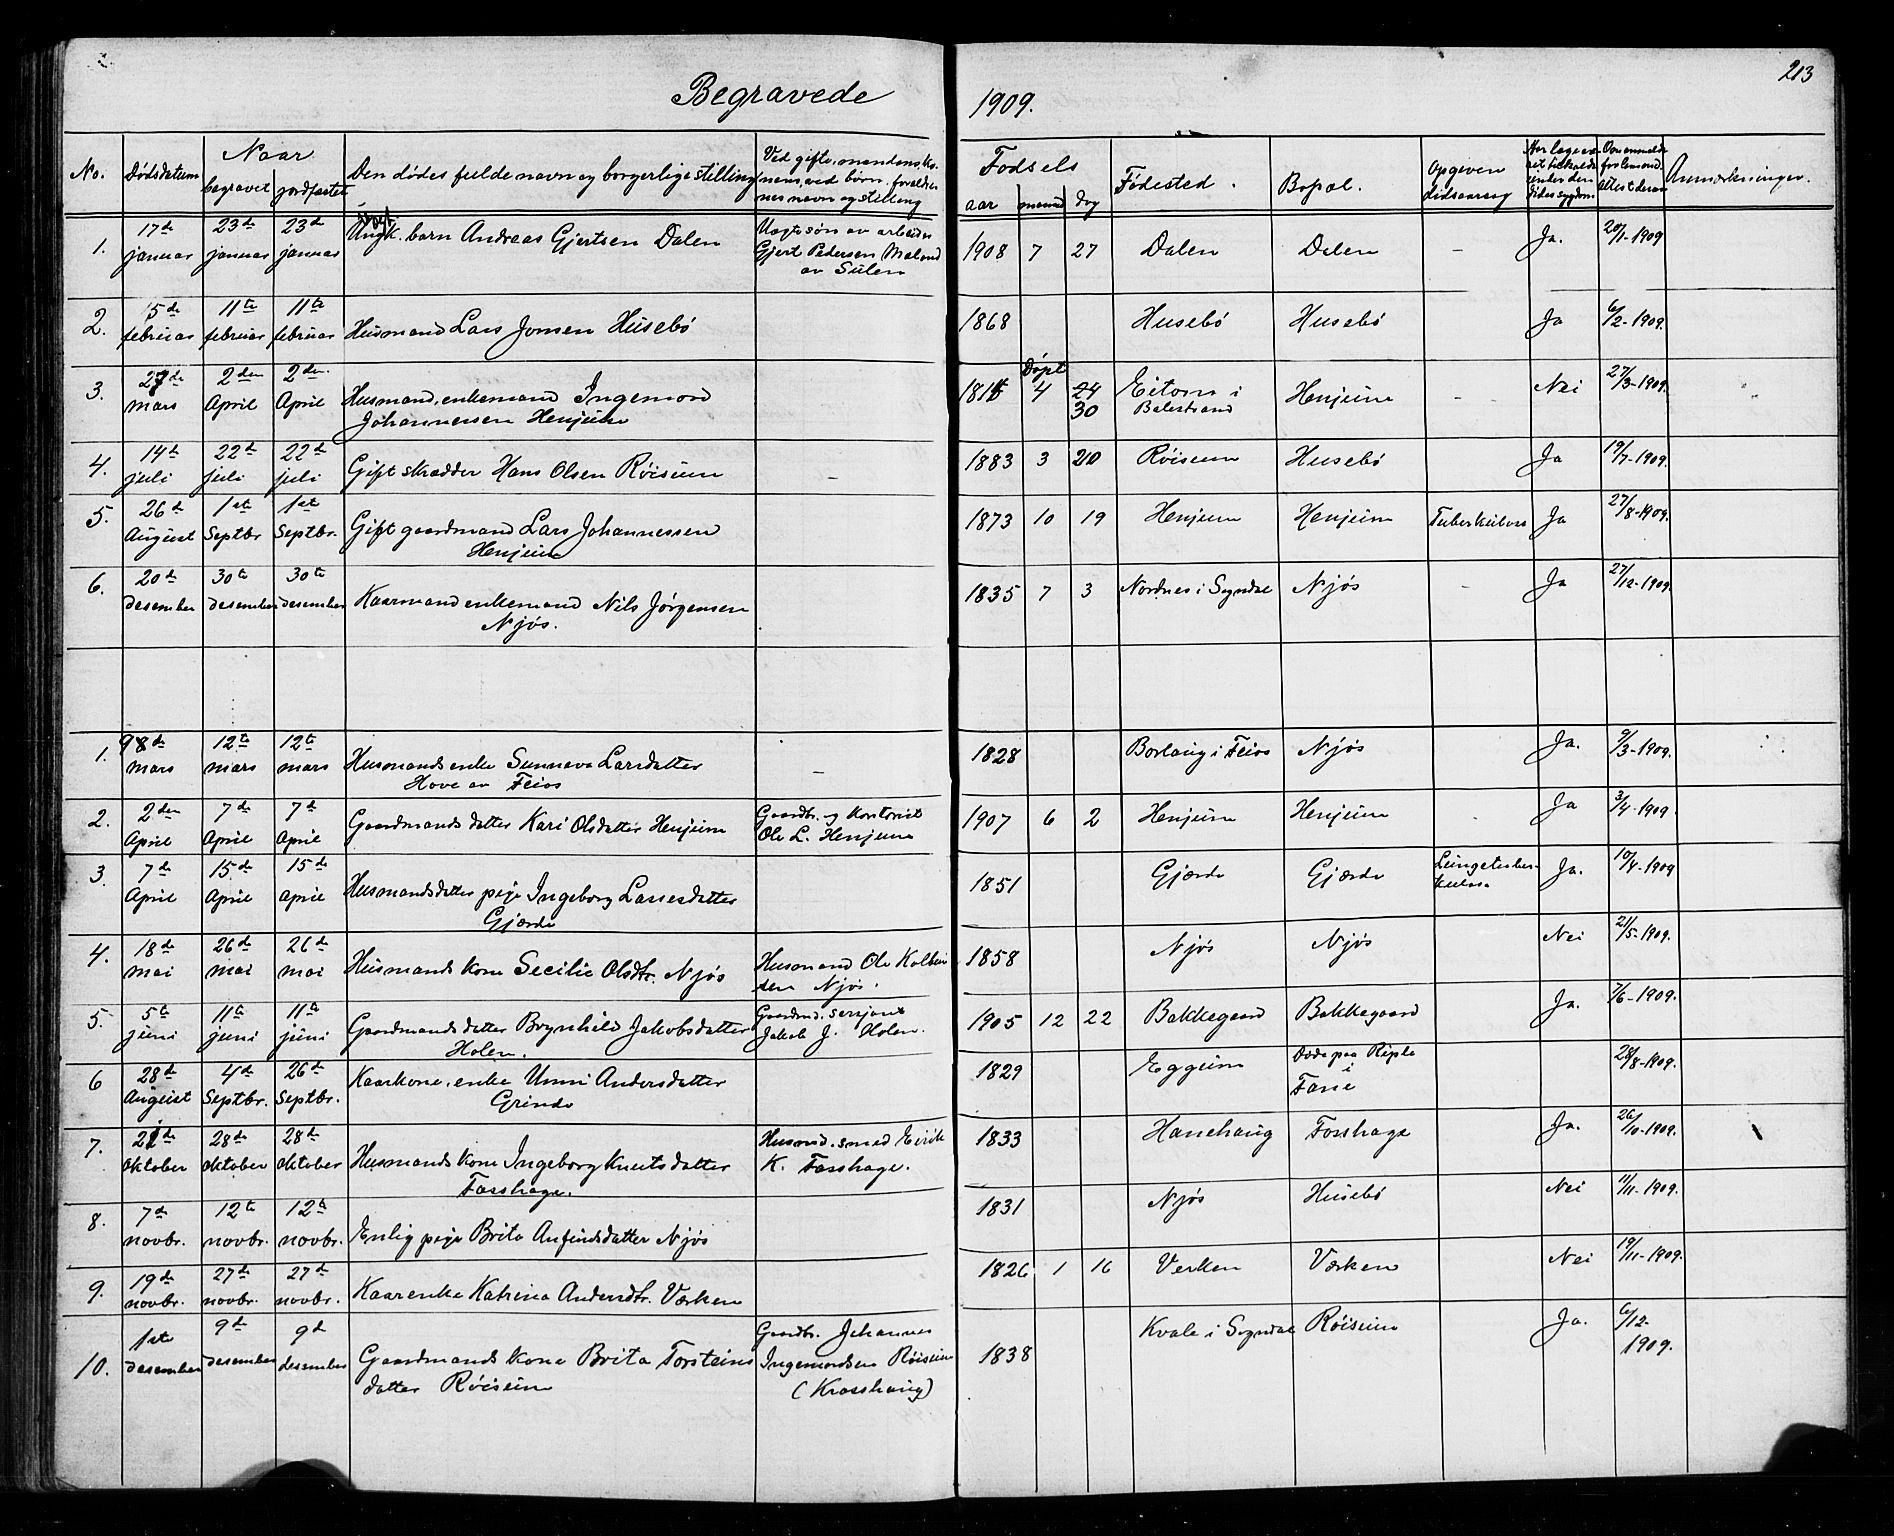 213
Begravede 1909.
No. Dødsdatum Naar begravet jordfæstet Den dødes fulde navn og borgerlige stilling Ved gifte, mandens, konens, ved børn, forældrenes navn og stilling Fødsels aar maaned dag Fødested. Bopæl. Opgiven dødsaarsag Anmærkninger.
1. 17de januar 23de januar 23de januar k. barn Andreas Gjertsen Dalen Uægte søn av arbeider 1908 7 27 Dalen Dalen - Ja. 20/1-1909
Gjert Pedersen
av Sulen
2. 5de februar 11te februar 11te februar Husmand Lars Jonsen Husebö 1868 Husebö Husebö Ja 6/2-1909.
3. 27de mars 2den April 2den April Husmand, enkemand Ingemord Døpt 4 24 30 Eitorn i Balestrand Henjum Nei 27/3-1909.
Johannessen Henjum
4. 14de juli 22de juli 22de juli Gift skrædder Hans Olsen Röisum - 1883 3 20 Röisum Husebö Ja 19/7-1909.
5. 26de August 1ste Septbr 1ste Septbr. Gift gaardmand Lars Johannessen 1873 10 19 Henjum Henjum Tuberkulos Ja 27/8-1909.
Henjum
6. 20de desember 30te desember 30te desember Kaarmand enkemand Nils Jörgensen 1835 7 3 Nordnes i Sogndal Njös - Ja 27/12-1909.
Njös.
1. 98de mars 12te mars 12te mars Husmandsenke Sunneva Larsdatter - 1828 Borlaug i Feios Njös Ja. 9/3-1909.
Hove av Feios
2. 2den April 7de April 7de April Gaardmandsdatter Kari Olsdatter Henjum Gaardbr. og kontorist 1907 6 2 Henjum Henjum Ja 3/4-1909.
Ole L. Henjum
3. 7de April 15de April 15de April Husmandsdatter pige Ingeborg Lassesdatter 1851 Gjærde Gjærde Lungetuberkulose Ja. 10/4-1909
Gjærde
4. 18de mai 26de mai 26de mai Husmandskone Secilie Olsdtr. Njös Husmand Ole Kolbein 1858 Njös Njös Nei 21/5-1909.
sen Njös.
5. 5te juni 11te juni 11te juni Gaardmandsdatter Brynhild Jakobsdatter Gaardmd. serjant 1905 12 22 Bakkegaard Bakkegaard Ja. 7/6-1909.
Holen. Jakob J. Holen.
6 28de August 4de Septbr. 26de Septbr. Kaarkone, enke Unni Andersdatter 1829 Eggum Döde paa Ripla i Farie 28/8-1909.
Grinde
7. 21de oktober 28de oktober 28de oktober Husmandskone Ingeborg Knutsdatter Husmd. smed Eirik 1833 Hanehaug Fosshage Ja. 26/10-1909.
Fosshage. K. Fosshage.
8. 7de novbr. 12te novbr. 12te novbr. Enlig pige Brita Anfindsdatter Njös 1831 Njös Husebö Nei 11/11-1909.
9. 19de novbr. 27de novbr. 27de novbr. Kaarenke Katrina Andersdtr. Værken 1826 1 16 Verken Værken Nei 19/11-1909.
10. 1ste desember 9de desember 9de desember Gaardmandskone Brita Torsteins Gaardbr. Johannes 1838 Kvale i Sogndal Röisum Ja. 6/12-1909.
datter Röisum Ingemordsen Röisum
(Krosshaug)